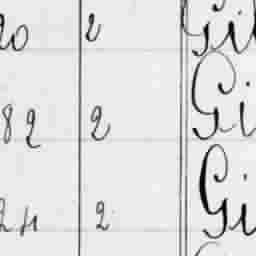 20 2 Gi
82 2 Gi
24 2 Gi